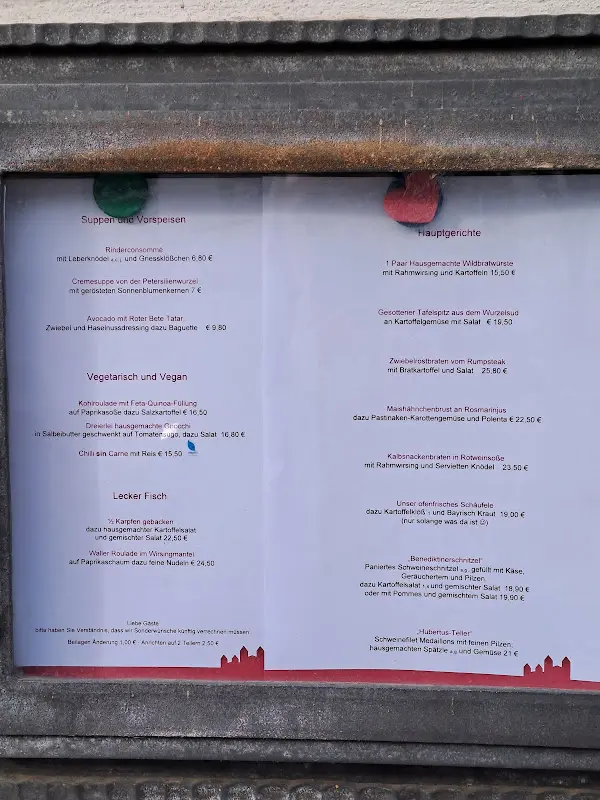 Suppen und Vorspeisen
Rinderconsomme
mit Leberknödel a,c,j und Griessklößchen 6,80 €
Cremesuppe von der Petersilienwurzel
mit gerösteten Sonnenblumenkernen 7 €
Avocado mit Roter Bete Tatar,
Zwiebel und Haselnussdressing dazu Baguette € 9,80
Vegetarisch und Vegan
Kohlroulade mit Feta-Quinoa-Füllung
auf Paprikasoße dazu Salzkartoffel € 16,50
Dreierlei hausgemachte Gnocchi
in Salbeibutter geschwenkt auf Tomatensugo, dazu Salat 16,80 €
Chilli sin Carne mit Reis € 15,50
Lecker Fisch
½ Karpfen gebacken
dazu hausgemachter Kartoffelsalat
und gemischter Salat 22,50 €
Waller Roulade im Wirsingmantel
auf Paprikaschaum dazu feine Nudeln € 24,50
Liebe Gäste
bitte haben Sie Verständnis, dass wir Sonderwünsche künftig verrechnen müssen
Beilagen Änderung 1,00 € - Anrichten auf 2 Tellern 2,50 €
Hauptgerichte
1 Paar Hausgemachte Wildbratwürste
mit Rahmwirsing und Kartoffeln 15,50 €
Gesottener Tafelspitz aus dem Wurzelsud
an Kartoffelgemüse mit Salat € 19,50
Zwiebelrostbraten vom Rumpsteak
mit Bratkartoffel und Salat 25,80 €
Maishähnchenbrust an Rosmarinjus
dazu Pastinaken-Karottengemüse und Polenta € 22,50
Kalbsnackenbraten in Rotweinsoße
mit Rahmwirsing und Servietten Knödel 23,50 €
Unser ofenfrisches Schäufele
dazu Kartoffelkloß und Bayrisch Kraut 19,00 €
(nur solange was da ist ☺)
„Benediktinerschnitzel"
Paniertes Schweineschnitzel a,g, gefüllt mit Käse,
Geräuchertem und Pilzen,
dazu Kartoffelsalat und gemischter Salat 18,90 €
oder mit Pommes und gemischtem Salat 19,90 €
„Hubertus-Teller"
Schweinefilet Medaillons mit feinen Pilzen,
hausgemachten Spätzle a,g und Gemüse 21 €